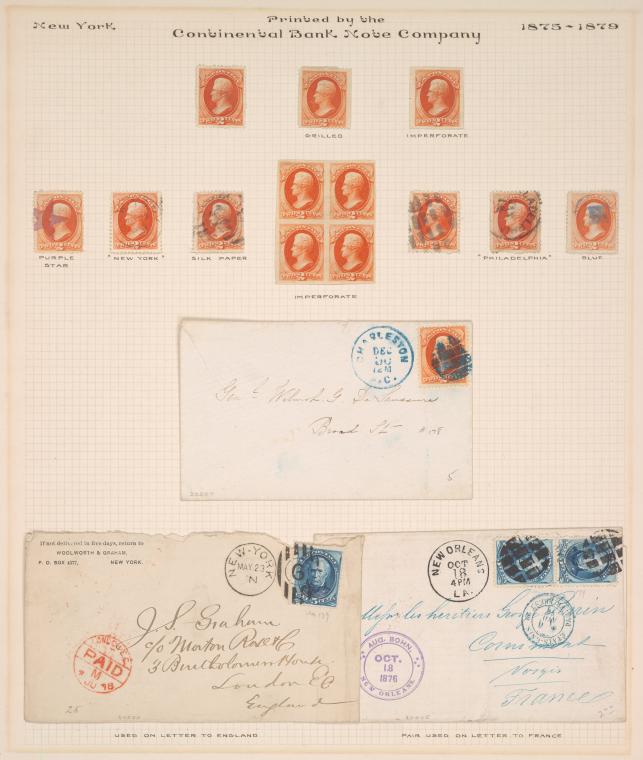 New York
Printed by the
Continental Bank Note Company
1875-1879
GRILLED
IMPERFORATE
PURPLE
STAR
"NEW YORK"
SILK PAPER
IMPERFORATE
"PHILADELPHIA"
BLUE
CHARLESTON
DEC
12M
S.C.
Broad St.
5
If not delivered in five days, return to
WOOLWORTH & GRAHAM,
P. O. BOX 4377, NEW YORK.
NEW-YORK
MAY 23
J. S. Graham
c/o Morton Rose & Co
3 Bartholomew House
London E C
England
PAID
25
NEW ORLEANS
OCT
18
4 PM
LA.
AUG. BOHN.
OCT.
18
1876
NEW ORLEANS
Messrs les heritiers
Cornimont
Vosges
France
USED ON LETTER TO ENGLAND
PAIR USED ON LETTER TO FRANCE